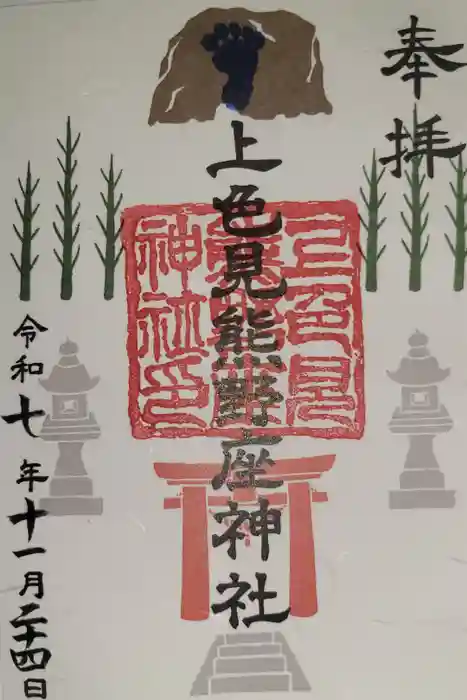 奉拝
上色見熊野座神社
上色見
熊野座
神社印
令和七年十一月二十四日